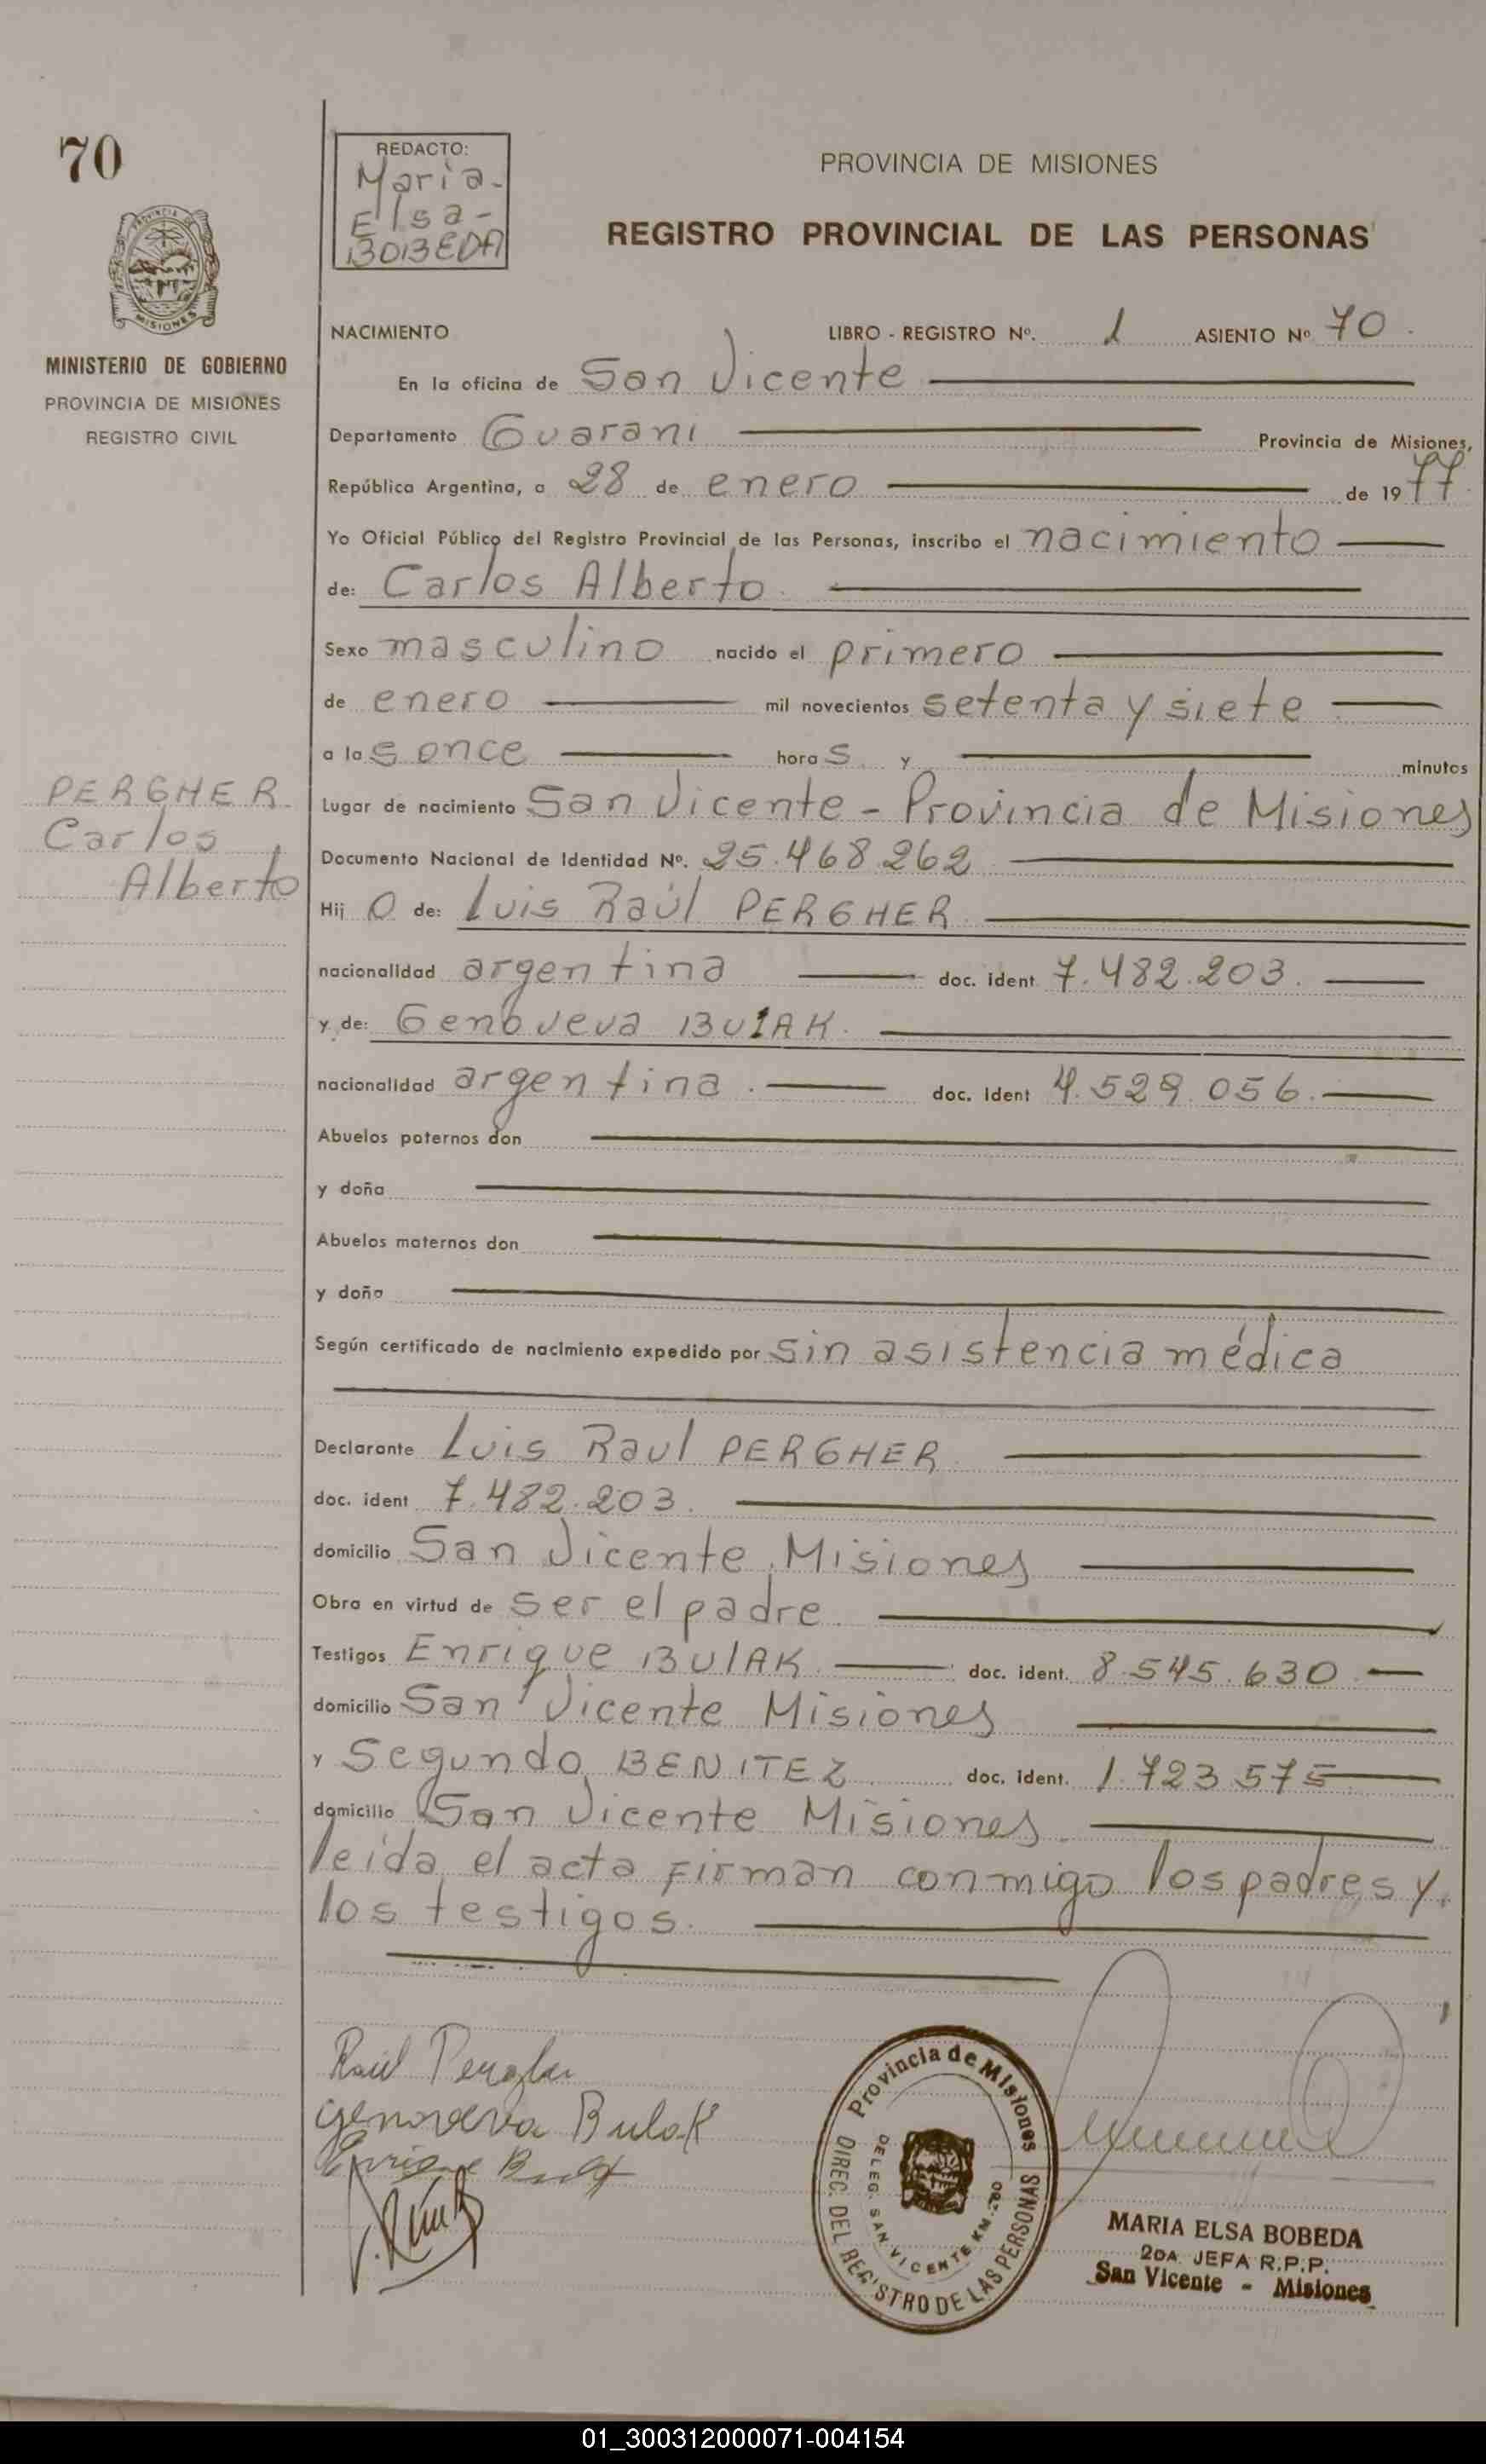 70
REDACTO:
Maria-
Elsa-
BOBEDA
PROVINCIA DE MISIONES
REGISTRO PROVINCIAL DE LAS PERSONAS
PROVINCIA DE
MISIONES
MINISTERIO DE GOBIERNO
PROVINCIA DE MISIONES
REGISTRO CIVIL
NACIMIENTO LIBRO - REGISTRO Nº. 1 ASIENTO Nº 70.
En la oficina de San Vicente
Departamento Guarani Provincia de Misiones,
República Argentina, a 28 de enero de 1977.
Yo Oficial Público del Registro Provincial de las Personas, inscribo el nacimiento
de: Carlos Alberto.
Sexo masculino nacido el primero
de enero mil novecientos setenta y siete
a las once horas y minutos
PERGHER
Carlos
Alberto
Lugar de nacimiento San Vicente - Provincia de Misiones
Documento Nacional de Identidad Nº. 25.468.262
Hijo de: Luis Raúl PERGHER.
nacionalidad argentina doc. ident 7.482.203.
y de: Genoveva BUIAK.
nacionalidad argentina. doc. ident 4.529.056.
Abuelos paternos don
y doña
Abuelos maternos don
y doña
Según certificado de nacimiento expedido por sin asistencia médica
Declarante Luis Raul PERGHER.
doc. ident 7.482.203.
domicilio San Vicente, Misiones
Obra en virtud de ser el padre
Testigos Enrique BUIAK. doc. ident. 8.545.630.
domicilio San Vicente Misiones
y Segundo BENITEZ doc. ident. 1.723.575
domicilio San Vicente Misiones.
leida el acta firman conmigo los padres y
los testigos.
Raul Pergher
genoveva Bulak
Enrique
Provincia de Misiones
DIREC. DEL REGISTRO DE LAS PERSONAS
DELEG. SAN VICENTE KM. 280
MARIA ELSA BOBEDA
2DA. JEFA R.P.P.
San Vicente - Misiones
01_300312000071-004154